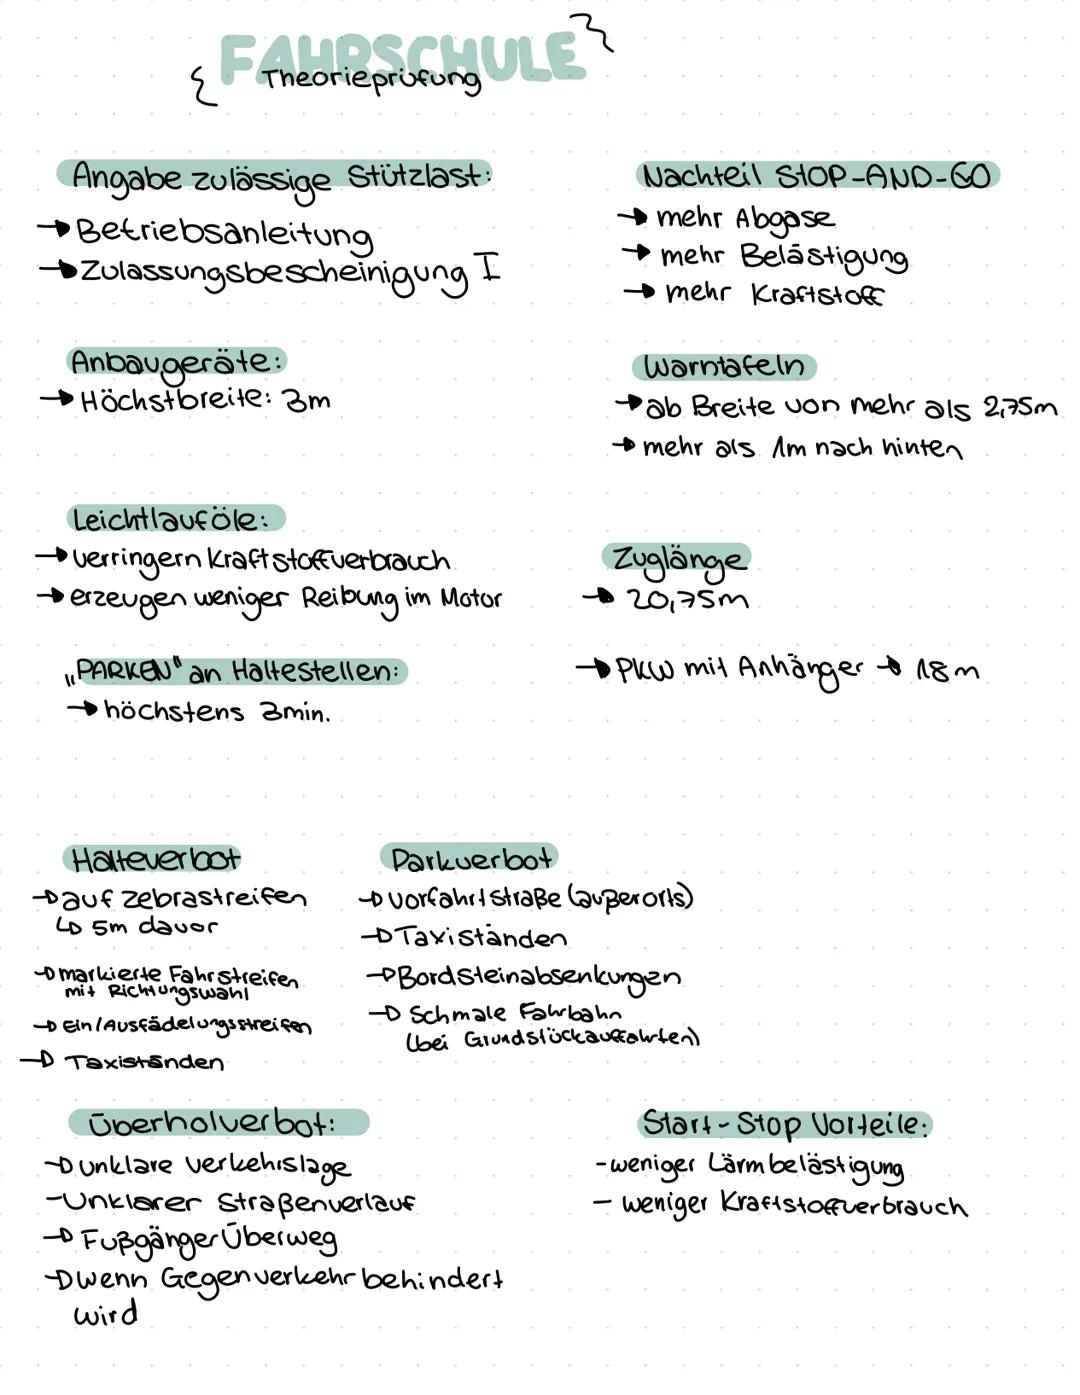 FAHRSCHULE
Theorieprüfung
Angabe zulässige Stützlast:
→ Betriebsanleitung
→ Zulassungsbescheinigung I
Anbaugeräte:
→ Höchstbreite: 3m
Leichtlauföle:
→ verringern Kraftstoffverbrauch
→ erzeugen weniger Reibung im Motor
„PARKEN" an Haltestellen:
→ höchstens 3min.
Nachteil STOP-AND-GO
→ mehr Abgase
→ mehr Belästigung
→ mehr Kraftstoff
Warntafeln
→ ab Breite von mehr als 2,75m
→ mehr als 1m nach hinten
Zuglänge
→ 20,75m
→ PKW mit Anhänger → 18m
Halteverbot
→ auf Zebrastreifen
↳ 5m davor
→ markierte Fahrstreifen
mit Richtungswahl
→ Ein/Ausfädelungsstreifen
→ Taxiständen
Parkverbot
→ Vorfahrtstraße (außerorts)
→ Taxiständen
→ Bordsteinabsenkungen
→ Schmale Fahrbahn
(bei Grundstückauffahrten)
Überholverbot:
→ unklare Verkehrslage
- Unklarer Straßenverlauf
→ Fußgänger Überweg
→ wenn Gegenverkehr behindert
wird
Start-Stop Vorteile:
- weniger Lärmbelästigung
- weniger Kraftstoffverbrauch